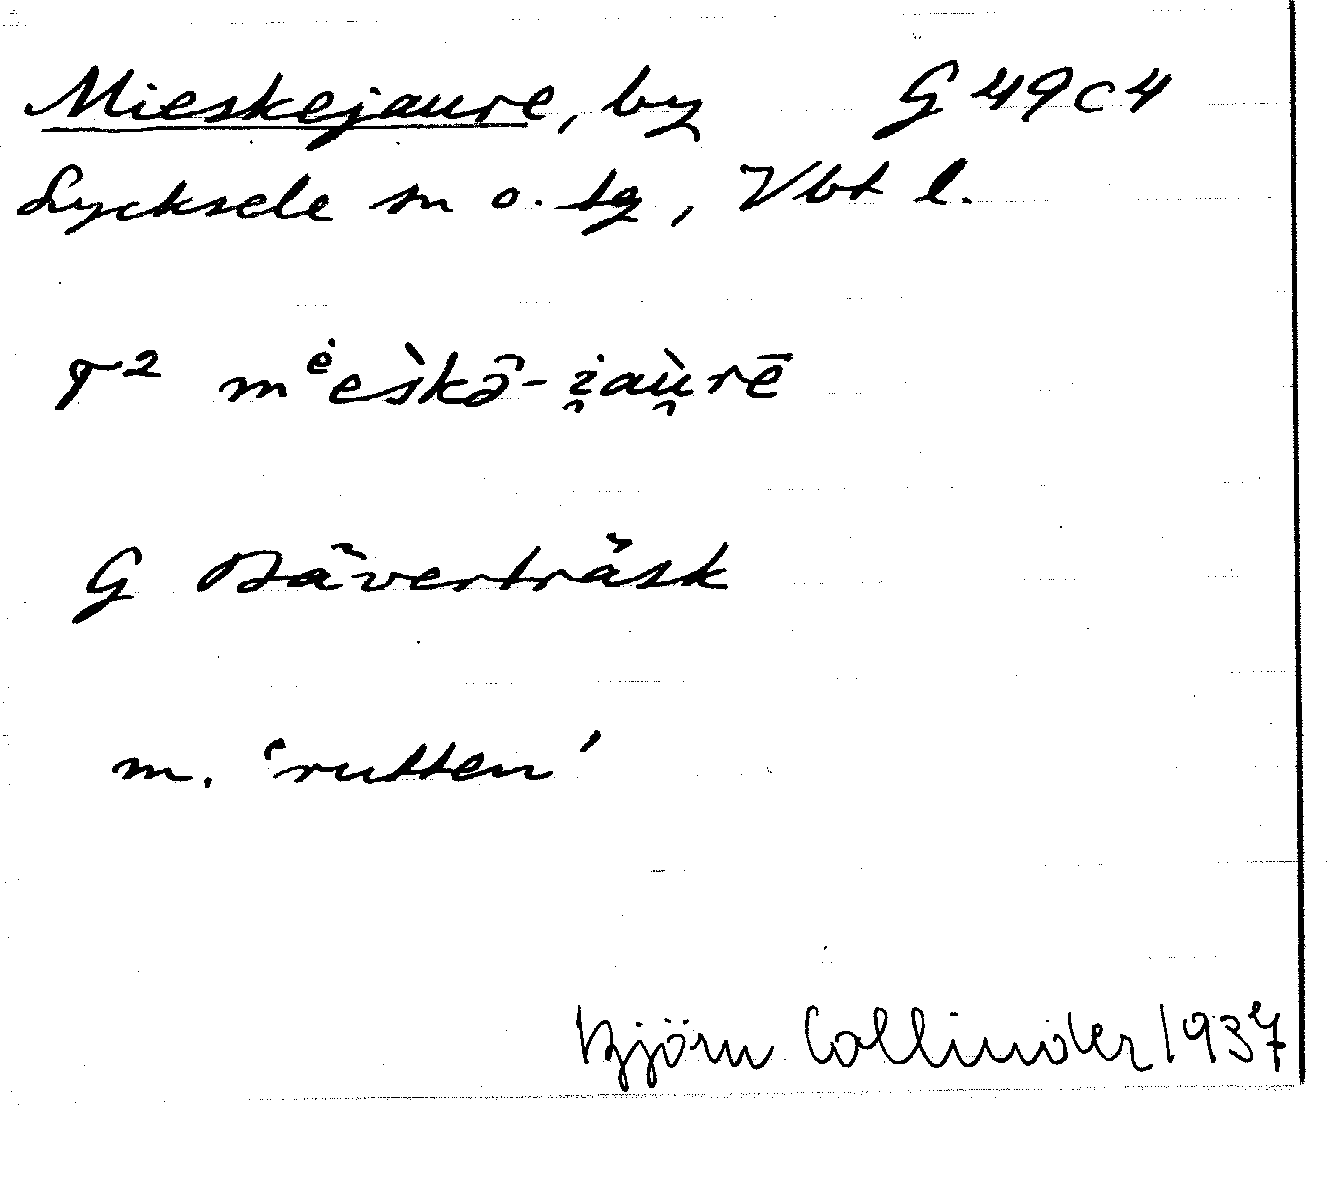 Mieskejaure, by G 49 c 4
Lycksele sn o. tg, Vbt l.
T² mėes̀kō̂-i̯aù̯rē
G Bäverträsk
m. ‘rutten’
Björn Collinder 1937